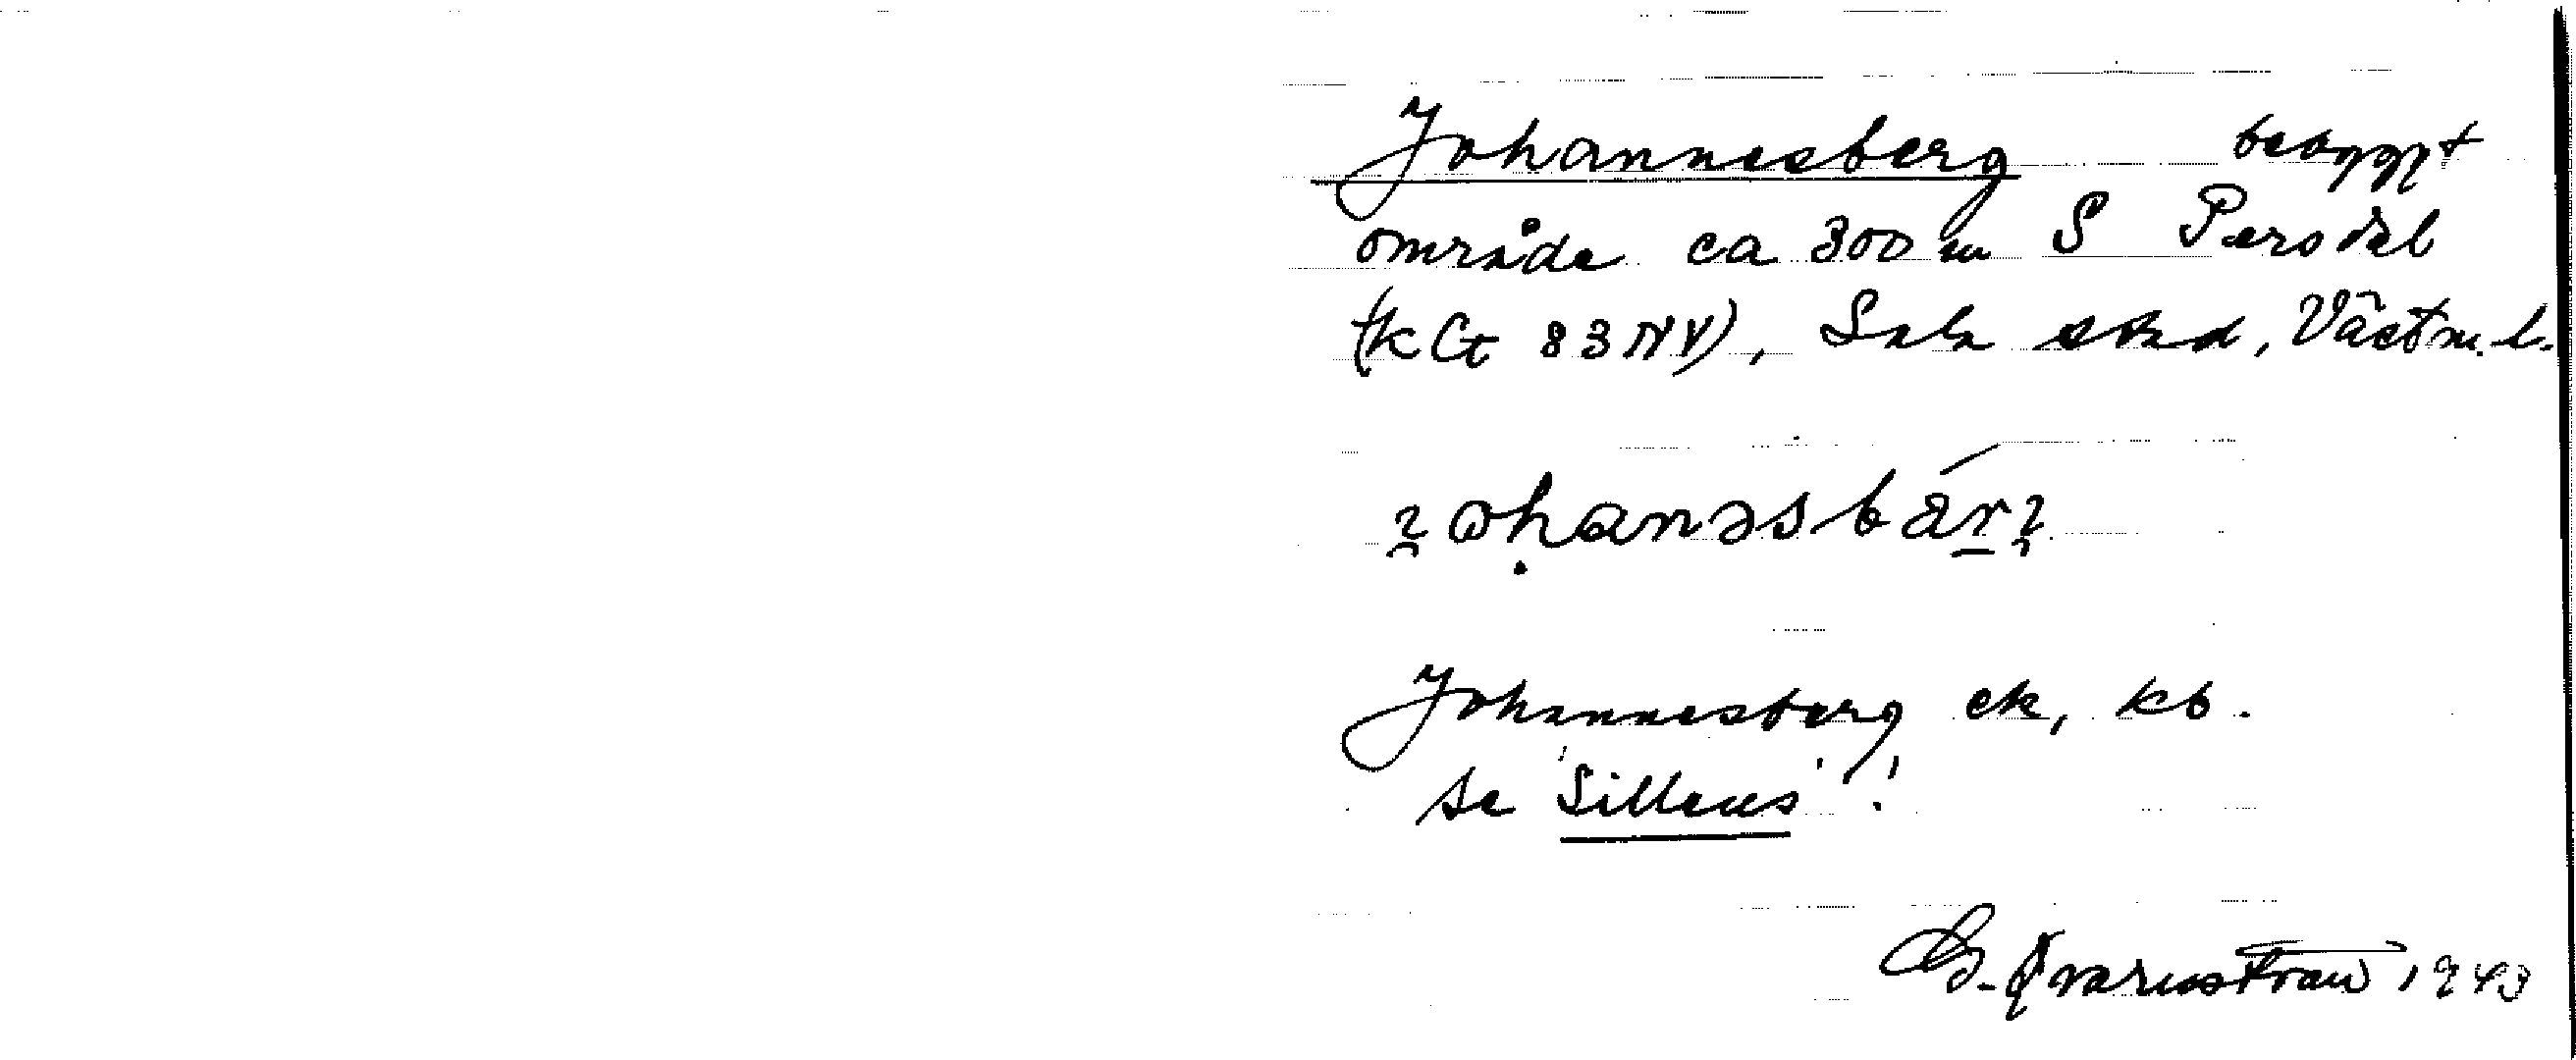 Johannesberg bebyggt
område ca 300 m S Persdal
(k Ct 83 NV), Sala stad, Västm. l.
Johannesberg ek, kb.
se 'Sillens'!
G. Qvarnström 1943